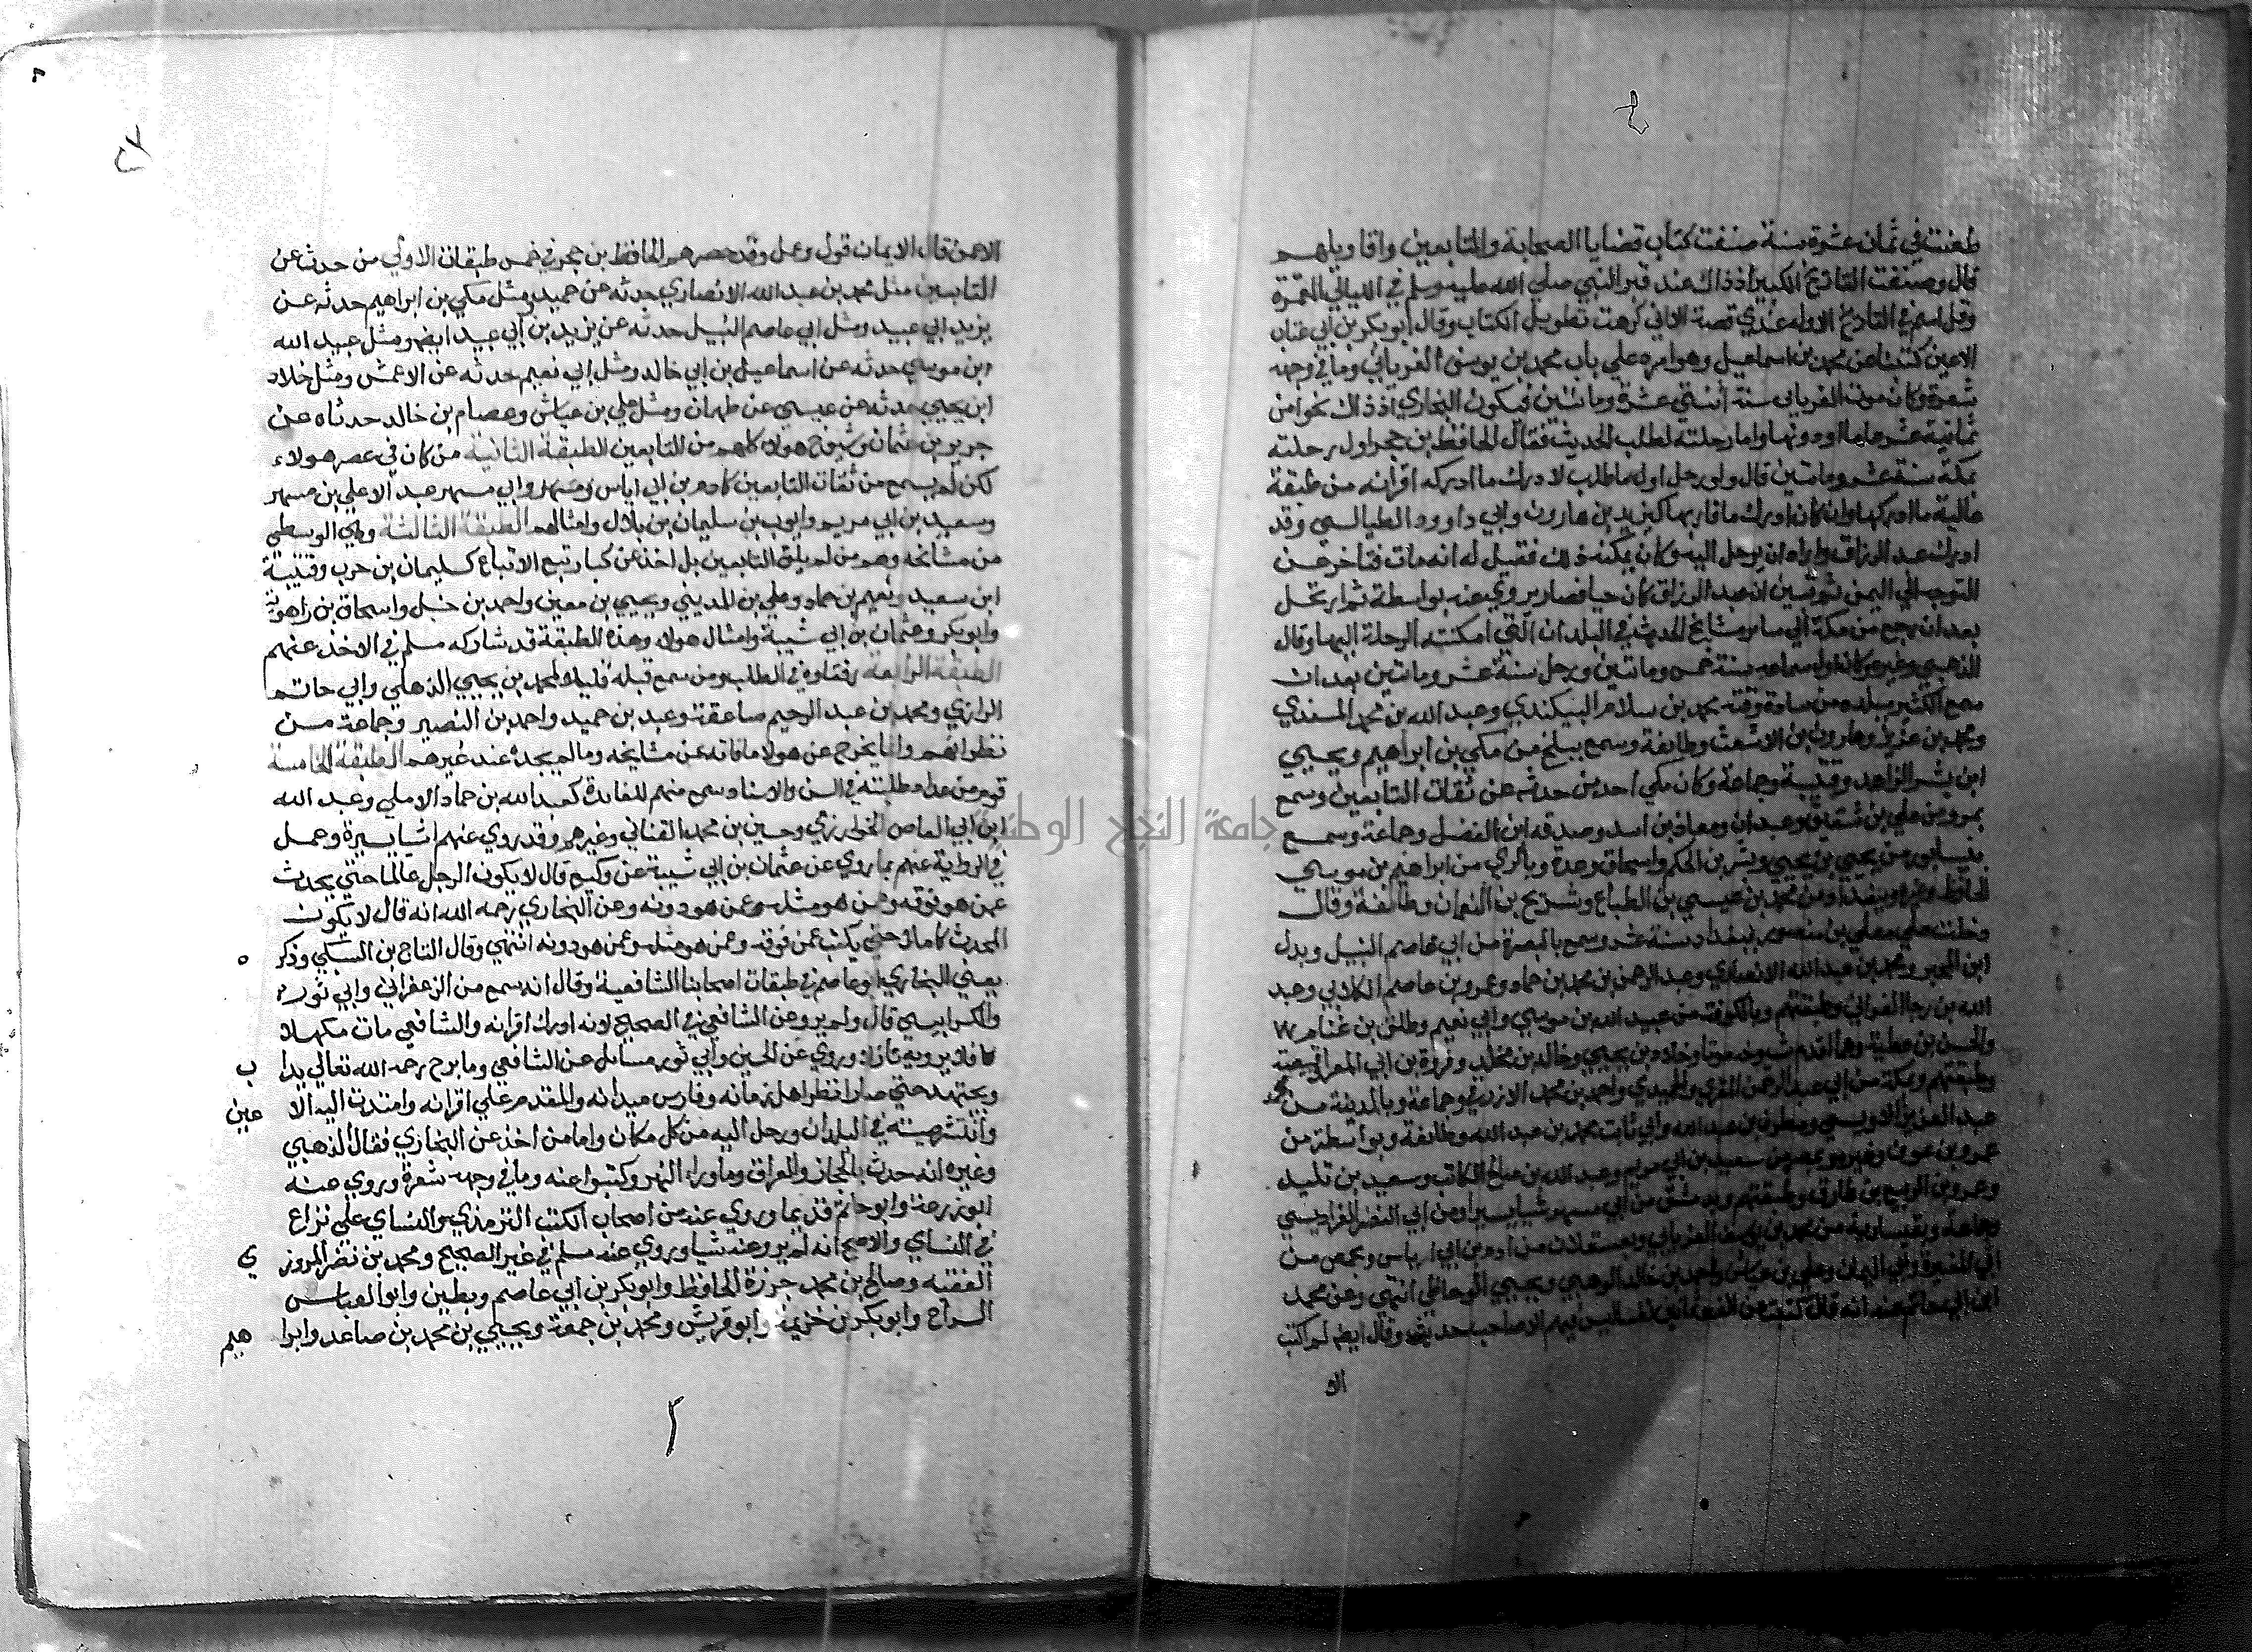 طعنت في ثمان عشرة سنة صنفت كتاب قضايا الصحابة والتابعين واقاويلهم
قال وصنفت التاريخ الكبير اذ ذاك عند قبر النبي صلي الله عليه وسلم في الليالي المقمرة
وقل اسم في التاريخ الا وله عندي قصة الا اني كرهت تطويل الكتاب وقال ابو بكر بن ابي عتاب
الاعين كتبنا عن محمد بن اسماعيل وهو امرد علي باب محمد بن يوسف الفريابي وما في وجهه
شعرة وكان موت الفريابي سنة اثنتي عشرة ومائتين فيكون البخاري اذ ذاك نحوا من
ثمانية عشر عاما او دونها واما رحلته لطلب الحديث فقال الحافظ بن حجر اول رحلته
بمكة سنة عشر ومائتين قال ولو رحل اول ما طلب لادرك ما ادركه اقرانه من طبقة
عالية ما ادركها وان كان ادرك ما قاربها كيزيد بن هارون وابي داوود الطيالسي وقد
ادرك عبد الرزاق واراد ان يرحل اليه وكان يمكنه ذلك فقيل له انه مات فتاخر عن
التوجه الي اليمن ثم تبين ان عبد الرزاق كان حيا فصار يروي عنه بواسطة ثم ارتحل
بعد ان رجع من مكة الي ساير مشايخ الحديث في البلدان التي امكنته الرحلة اليها وقال
الذهبي وغيره كان اول سماعه سنة خمس ومائتين ورحل سنة عشر ومائتين بعد ان
سمع الكثير ببلده من سادة وقته محمد بن سلام البيكندي وعبد الله بن محمد المسندي
ومحمد بن عزيز وهارون بن الاشعث وطايفة وسمع ببلخ من مكي بن ابراهيم ويحيي
ابن بشر الزاهد وقتيبة وجماعة وكان مكي احد من حدثه عن ثقات التابعين وسمع
بمرو من علي بن شقيق وعبدان ومعاذ بن اسد وصدقه ابن الفضل وجماعة وسمع
بنيسابور من يحيي بن يحيي وبشر بن الحكم واسحاق وعدة وبالري من ابراهيم بن موسي
الحافظ وغيره وببغداد من محمد بن عيسي بن الطباع وشريح بن النعمان وطائفة وقال
دخلت علي معلي بن منصور ببغداد سنة عشر وسمع بالبصرة من ابي عاصم النبيل وبدل
ابن المحبر ومحمد بن عبد الله الانصاري وعبد الرحمن بن محمد بن حماد وعمرو بن عاصم الكلابي وعبد
الله بن رجا الغداني وطبقتهم وبالكوفة من عبيد الله بن موسي وابي نعيم وطلق بن غنام
والحسن بن عطية وهما اقدم شيوخه موتا وخلاد بن يحيي وخالد بن مخلد وفروة بن ابي المغرا وقبيصة
وطبقتهم وبمكة من ابي عبد الرحمن المقري والحميدي واحمد بن محمد الازرقي وجماعة وبالمدينة من
عبد العزيز الاويسي ومطرف بن عبد الله وابي ثابت محمد بن عبد الله وطائفة وبواسط من
عمرو بن عون وغيره وبمصر من سعيد بن ابي مريم وعبد الله بن صالح الكاتب وسعيد بن تليد
وعمرو بن الربيع بن طارق وطبقتهم وبدمشق من ابي مسهر شيا يسيرا ومن ابي النضر الفراديسي
وجماعة وبقيسارية من محمد بن يوسف الفريابي وبعسقلان من ادم بن ابي اياس وبحمص من
ابي المغيرة وابي اليمان وعلي بن عياش واحمد بن خالد الوهبي ويحيي الوحاظي انتهي وعن محمد
ابن ابي حاتم عنه انه قال كتبت عن الف وثمانين نفسا ليس فيهم الا صاحب حديث وقال ايضا لم اكتب
الا
الا عمن قال الايمان قول وعمل وقد حصرهم الحافظ بن حجر في خمس طبقات الاولي من حدثه عن
التابعين مثل محمد بن عبد الله الانصاري حدثه عن حميد ومثل مكي بن ابراهيم حدثه عن
يزيد ابي عبيد ومثل ابي عاصم النبيل حدثه عن يزيد بن ابي عبيد ايضا ومثل عبيد الله
ابن موسي حدثه عن اسماعيل بن ابي خالد ومثل ابي نعيم حدثه عن الاعمش ومثل خلاد
ابن يحيي حدثه عن عيسي عن طهمان ومثل علي بن عياش وعصام بن خالد حدثاه عن
جرير بن عثمان وشيوخ هولا كلهم من التابعين الطبقة الثانية من كان في عصر هولاء
لكن لم يسمع من ثقات التابعين كادم بن ابي اياس ومسهر وابي مسهر عبد الاعلي بن مسهر
وسعيد بن ابي مريم وايوب بن سليمان بن بلال وامثالهم الطبقة الثالثة وهي الوسطي
من مشائخه وهم من لم يلق التابعين بل اخذ عن كبار تبع الاتباع كسليمان بن حرب وقتيبة
ابن سعيد ونعيم بن حماد وعلي بن المديني ويحيي بن معين واحمد بن حنبل واسحاق بن راهوية
وابو بكر وعثمان بن ابي شيبة وامثال هولا وهذه الطبقة قد شاركه مسلم في الاخذ عنهم
الطبقة الرابعة رفقاوه في الطلب ومن سمع قبله قليلا كمحمد بن يحيي الذهلي وابي حاتم
الرازي ومحمد بن عبد الرحيم صاعقة وعبد بن حميد واحمد بن النضير وجماعة من
نظرائهم وانما يخرج عن هولا ما فاته عن مشايخه وما لم يجده عند غيرهم الطبقة الخامسة
قوم من عداد طلبته في السن والاسناد سمع منهم للفايدة كعبد الله بن حماد الاملي وعبد الله
ابن ابي العاص الخوارزمي وحسين بن محمد القباني وغيرهم وقد روي عنهم اشيا يسيرة وعمل
في الرواية عنهم بما روي عن عثمان بن ابي شيبة عن وكيع قال لا يكون الرجل عالما حتي يحدث
عمن هو فوقه وعمن هو مثله وعمن هو دونه وعن البخاري رحمه الله انه قال لا يكون
المحدث كاملا حتي يكتب عمن فوقه وعمن هو مثله وعمن هو دونه انتهي وقال التاج بن السبكي وذكره
يعني البخاري ابو عاصم في طبقات اصحابنا الشافعية وقال انه سمع من الزعفراني وابي ثور
والكرابيسي قال ولم يرو عن الشافعي في الصحيح لانه ادرك اقرانه والشافعي مات مكهلا
فلا يرويه نازلا وروي عن الحسين وابي ثور مسائل عن الشافعي وما برح رحمه الله تعالي يداب
ويجتهد حتي صار انظر اهل زمانه وفارس ميدانه والمقدم علي اقرانه وامتدت اليه الا عين
وانتشر صيته في البلدان ورحل اليه من كل مكان واما من اخذ عن البخاري فقال الذهبي
وغيره انه حدث بالحجاز والعراق وما وراء النهر وكتبوا عنه وما في وجهه شعرة وروي عنه
ابو زرعة وابو حاتم قديما وروي عنه من اصحاب الكتب الترمذي والنساي علي نزاع
في النساي والاصح انه لم يرو عنه شيا وروي عنه مسلم في غير الصحيح ومحمد بن نصر المروزي
الفقيه وصالح بن محمد جزرة الحافظ وابو بكر بن ابي عاصم ومطين وابو العباس
السراج وابو بكر بن خزيمة وابو قريش ومحمد بن جمعة ويحيي بن محمد بن صاعد وابراهيم
جامعة النجاح الوطنية